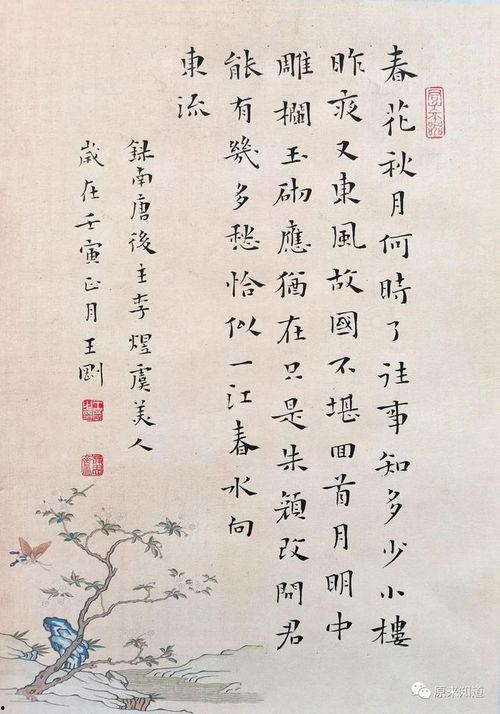 春花秋月何時了往事知多少小樓
昨夜又東風故國不堪回首月明中
雕欄玉砌應猶在只是朱顏改問君
能有幾多愁恰似一江春水向
東流
錄南唐後主李煜虞美人
歲在壬寅正月王剛
原来知道